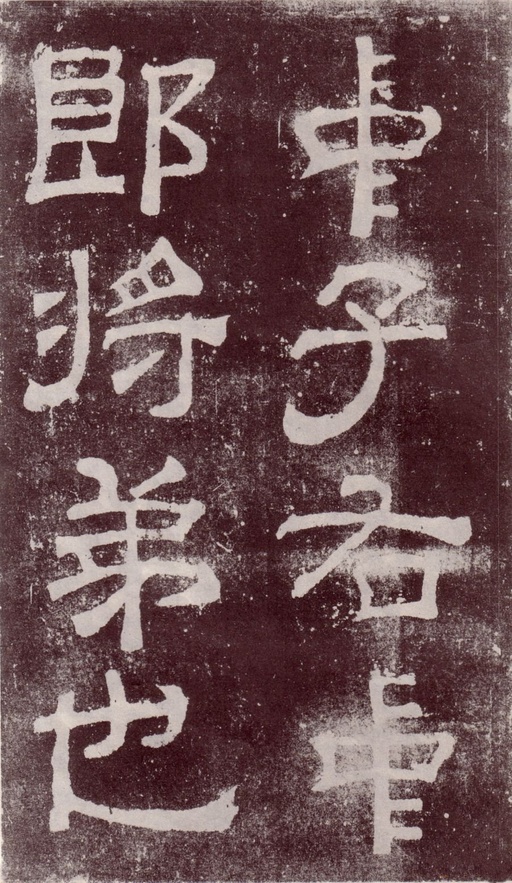 中子右中
郎將弟也